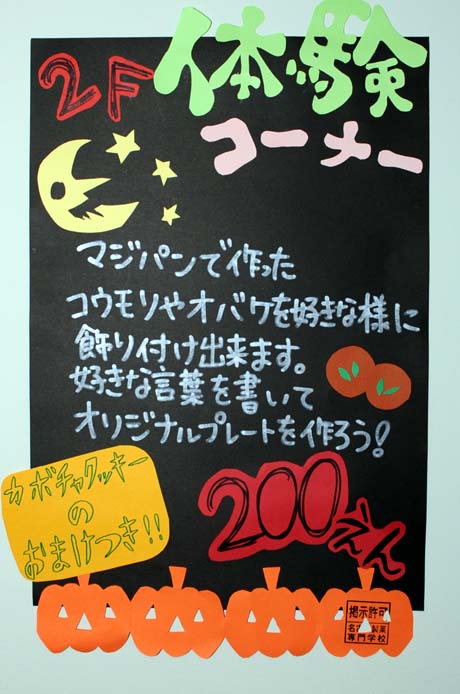 2F 体験
コーナー
マジパンで作った
コウモリやオバケを好きな様に
飾り付け出来ます。
好きな言葉を書いて
オリジナルプレートを作ろう!
200えん
カボチャクッキー
の
おまけつき!!
掲示許可
製菓
専門学校